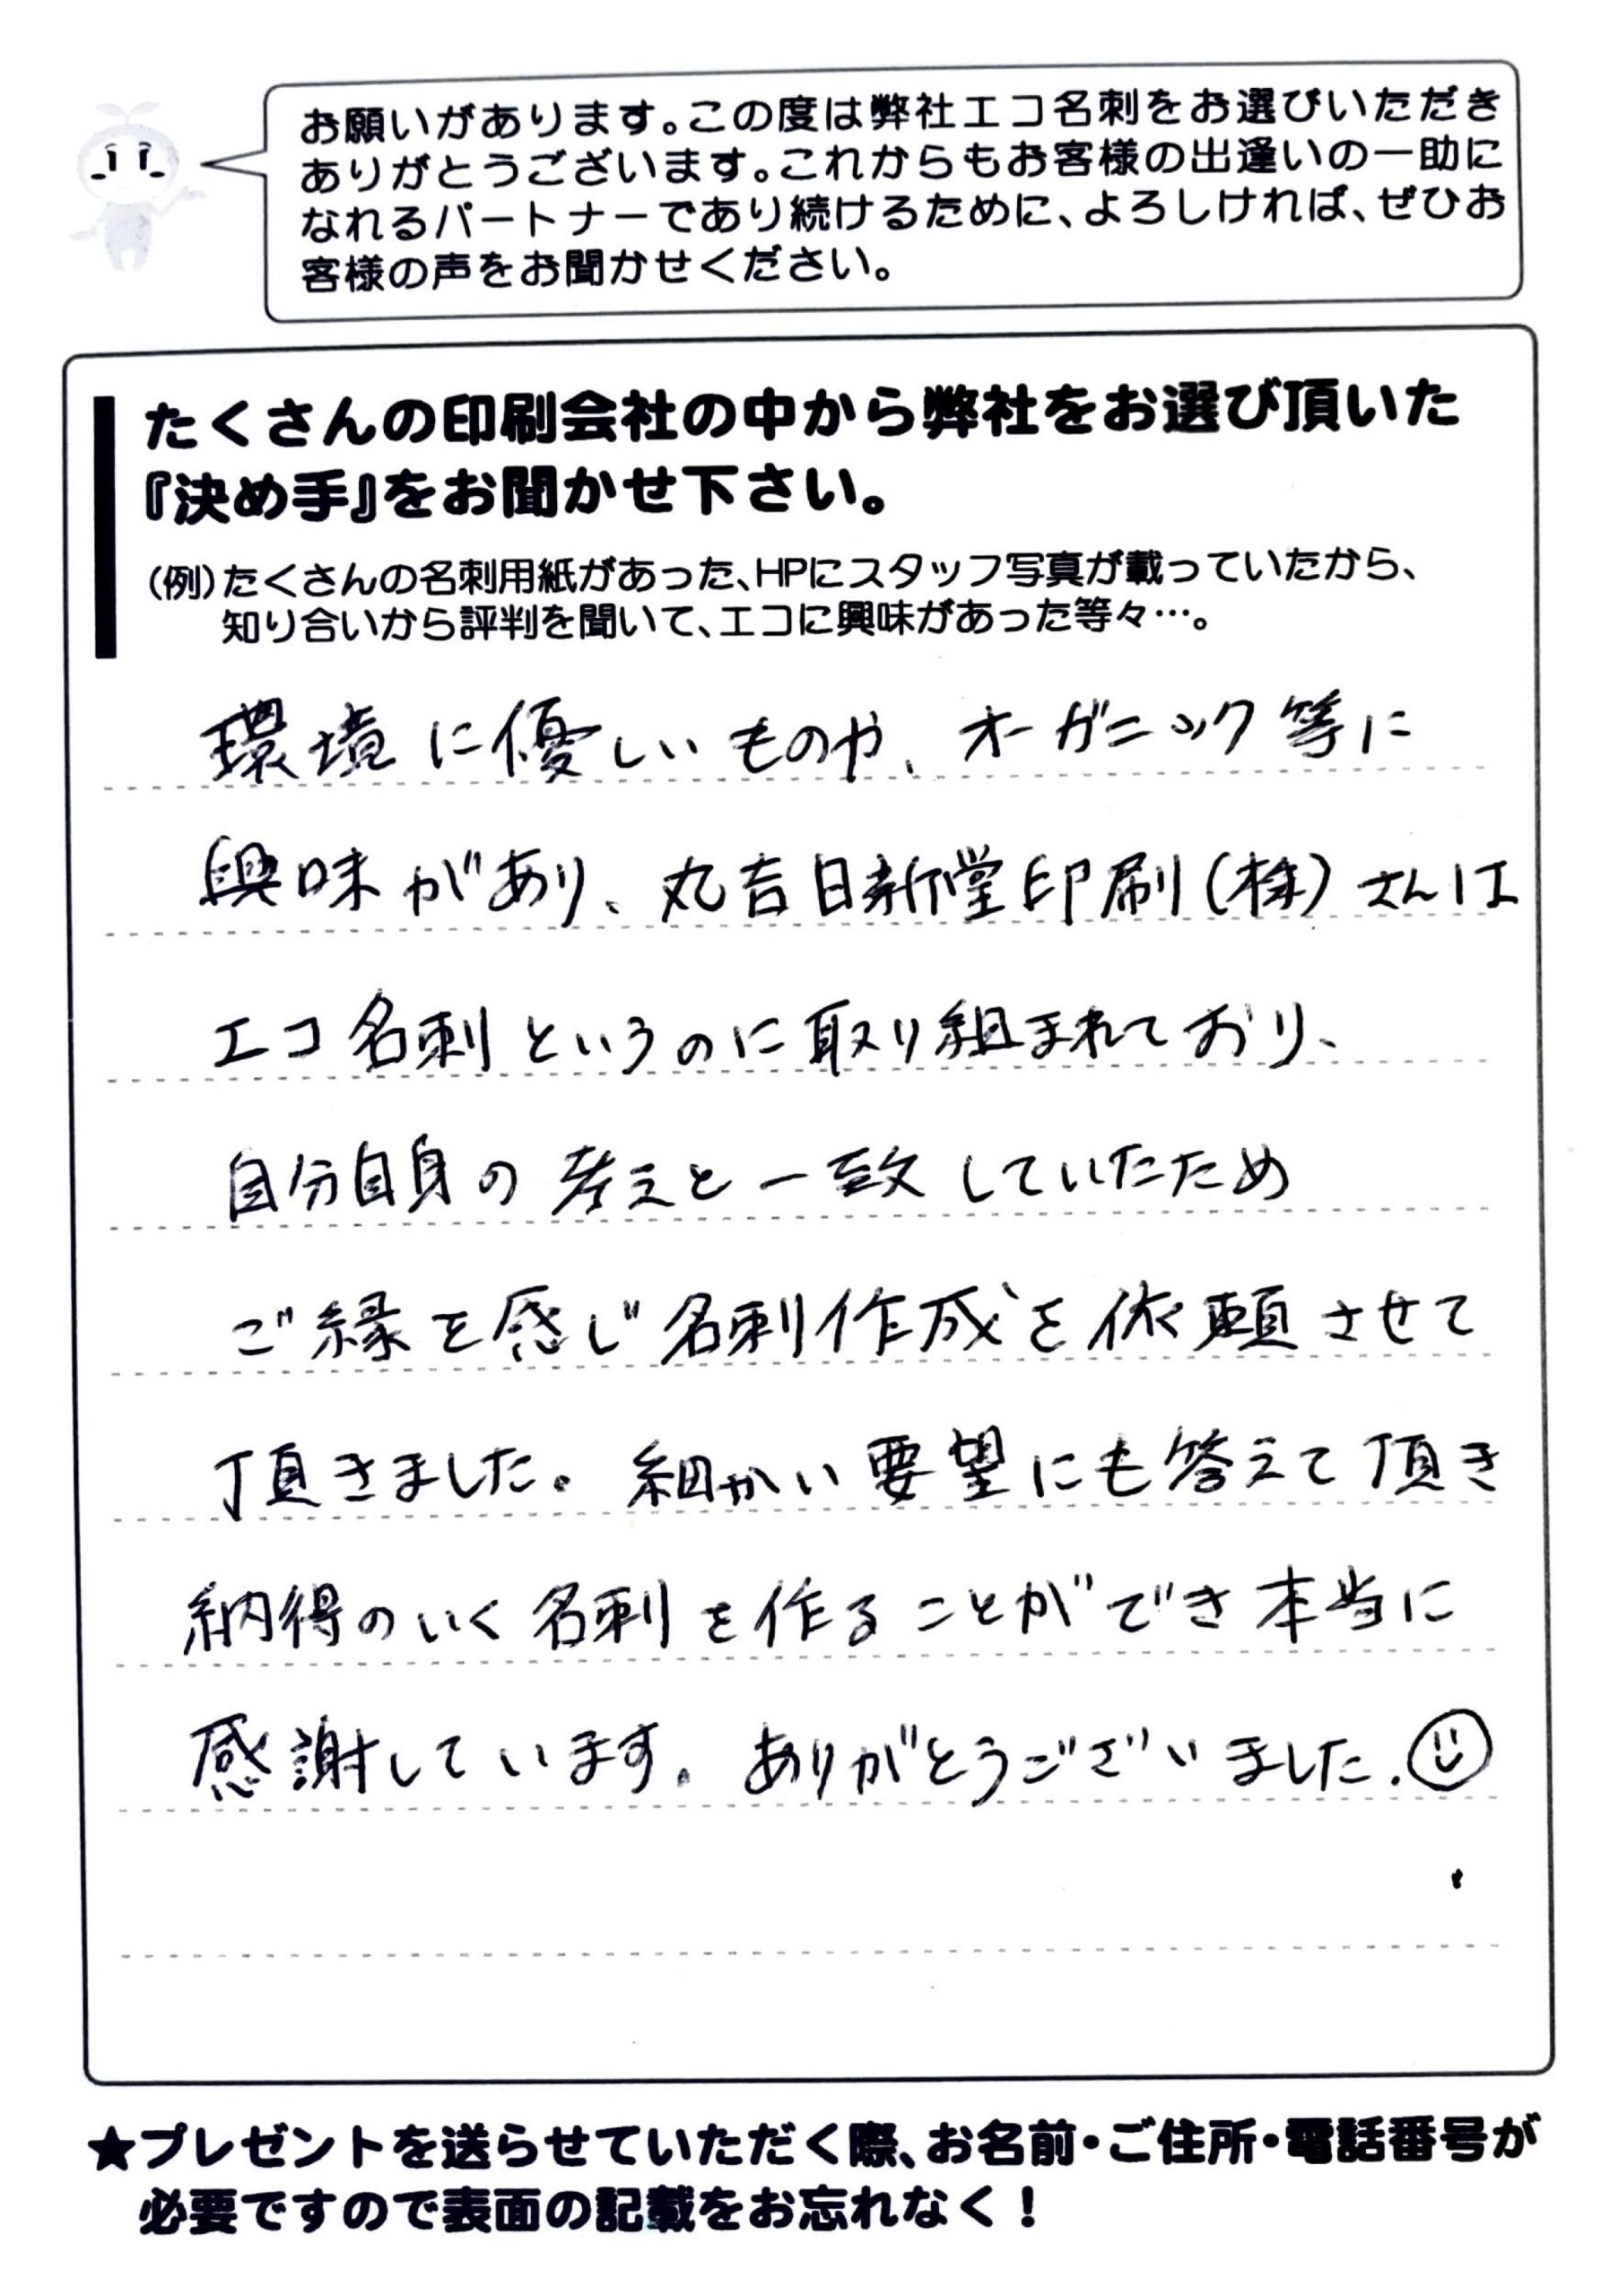 お願いがあります。この度は弊社エコ名刺をお選びいただき
ありがとうございます。これからもお客様の出逢いの一助に
なれるパートナーであり続けるために、よろしければ、ぜひお
客様の声をお聞かせください。
たくさんの印刷会社の中から弊社をお選び頂いた
『決め手』をお聞かせ下さい。
(例)たくさんの名刺用紙があった、HPにスタッフ写真が載っていたから、
知り合いから評判を聞いて、エコに興味があった等々…。
環境に優しいものや、オーガニック等に
興味があり、丸吉日新堂印刷(株)さんは
エコ名刺というのに取り組まれており、
自分自身の考えと一致していたため
ご縁を感じ名刺作成を依頼させて
頂きました。細かい要望にも答えて頂き
納得のいく名刺を作ることができ本当に
感謝しています。ありがとうございました.
★プレゼントを送らせていただく際、お名前・ご住所・電話番号が
必要ですので表面の記載をお忘れなく！